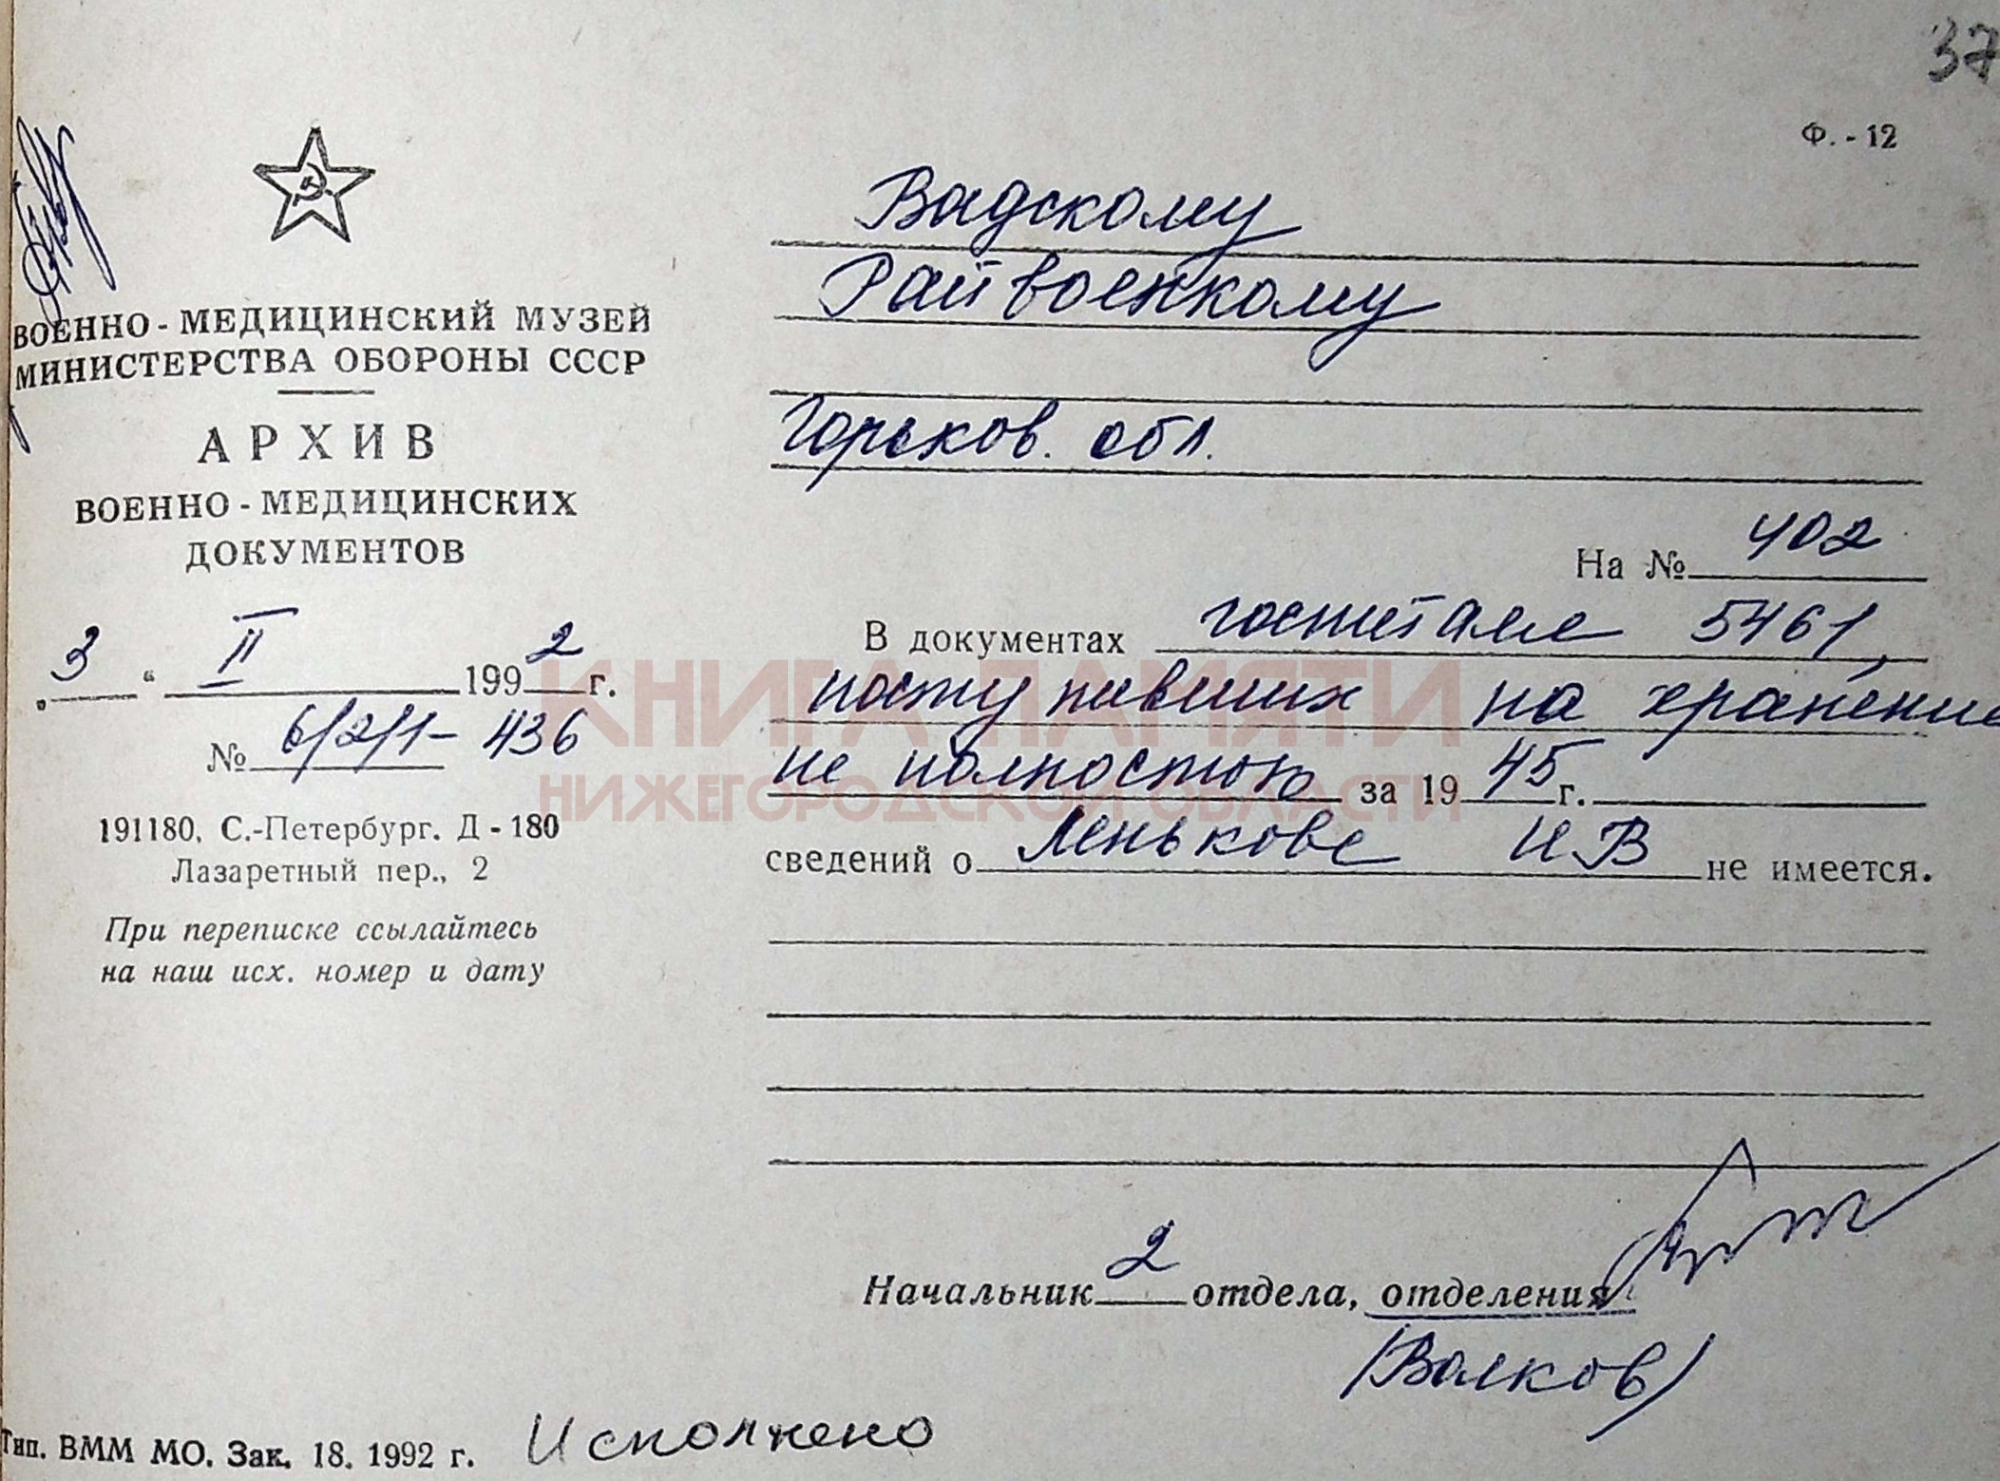 37
Ф. - 12
ВОЕННО - МЕДИЦИНСКИЙ МУЗЕЙ
МИНИСТЕРСТВА ОБОРОНЫ СССР
АРХИВ
ВОЕННО - МЕДИЦИНСКИХ
ДОКУМЕНТОВ
„ 3 “ II 1992 г.
№ 6/2/1- 436
191180, С.-Петербург. Д - 180
Лазаретный пер., 2
При переписке ссылайтесь
на наш исх. номер и дату
Вадскому
Райвоенкому
Горьков. обл.
На № 402
В документах госпиталя 5461,
поступивших на хранение
не полностью за 1945 г.
сведений о Ленькове И В не имеется.
Начальник 2 отдела, отделения
(Волков)
Тип. ВММ МО. Зак. 18. 1992 г.
Исполнено
КНИГА ПАМЯТИ
НИЖЕГОРОДСКОЙ ОБЛАСТИ